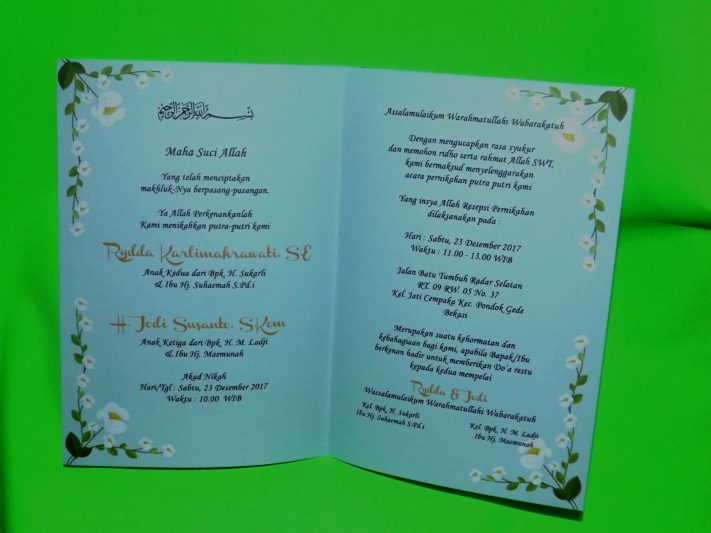 بسم الله الرحمن الرحيم
Maha Suci Allah
Yang telah menciptakan
makhluk-Nya berpasang-pasangan.
Ya Allah Perkenankanlah
Kami menikahkan putra-putri kami
Rydda Karlimahrawati. SE
Anak Kedua dari Bpk. H. Sukarli
& Ibu Hj. Suhaemah S.Pd.i
H. Jodi Susanto. SKom
Anak Ketiga dari Bpk. H. M. Ladji
& Ibu Hj. Maemunah
Akad Nikah
Hari/Tgl : Sabtu, 23 Desember 2017
Waktu : 10.00 WIB
Assalamulaikum Warahmatullahi Wabarakatuh
Dengan mengucapkan rasa syukur
dan memohon ridho serta rahmat Allah SWT,
kami bermaksud menyelenggarakan
acara pernikahan putra putri kami
Yang insya Allah Resepsi Pernikahan
dilaksanakan pada :
Hari : Sabtu, 23 Desember 2017
Waktu : 11.00 - 13.00 WIB
Jalan Batu Tumbuh Radar Selatan
RT. 09 RW. 05 No. 37
Kel. Jati Cempaka Kec. Pondok Gede
Bekasi
Merupakan suatu kehormatan dan
kebahagiaan bagi kami, apabila Bapak/Ibu
berkenan hadir untuk memberikan Do'a restu
kepada kedua mempelai
Rydda & Jodi
Wassalamulaikum Warahmatullahi Wabarakatuh
Kel. Bpk. H. Sukarli
Ibu Hj. Suhaemah S.Pd.i
Kel. Bpk. H. M. Ladji
Ibu Hj. Maemunah